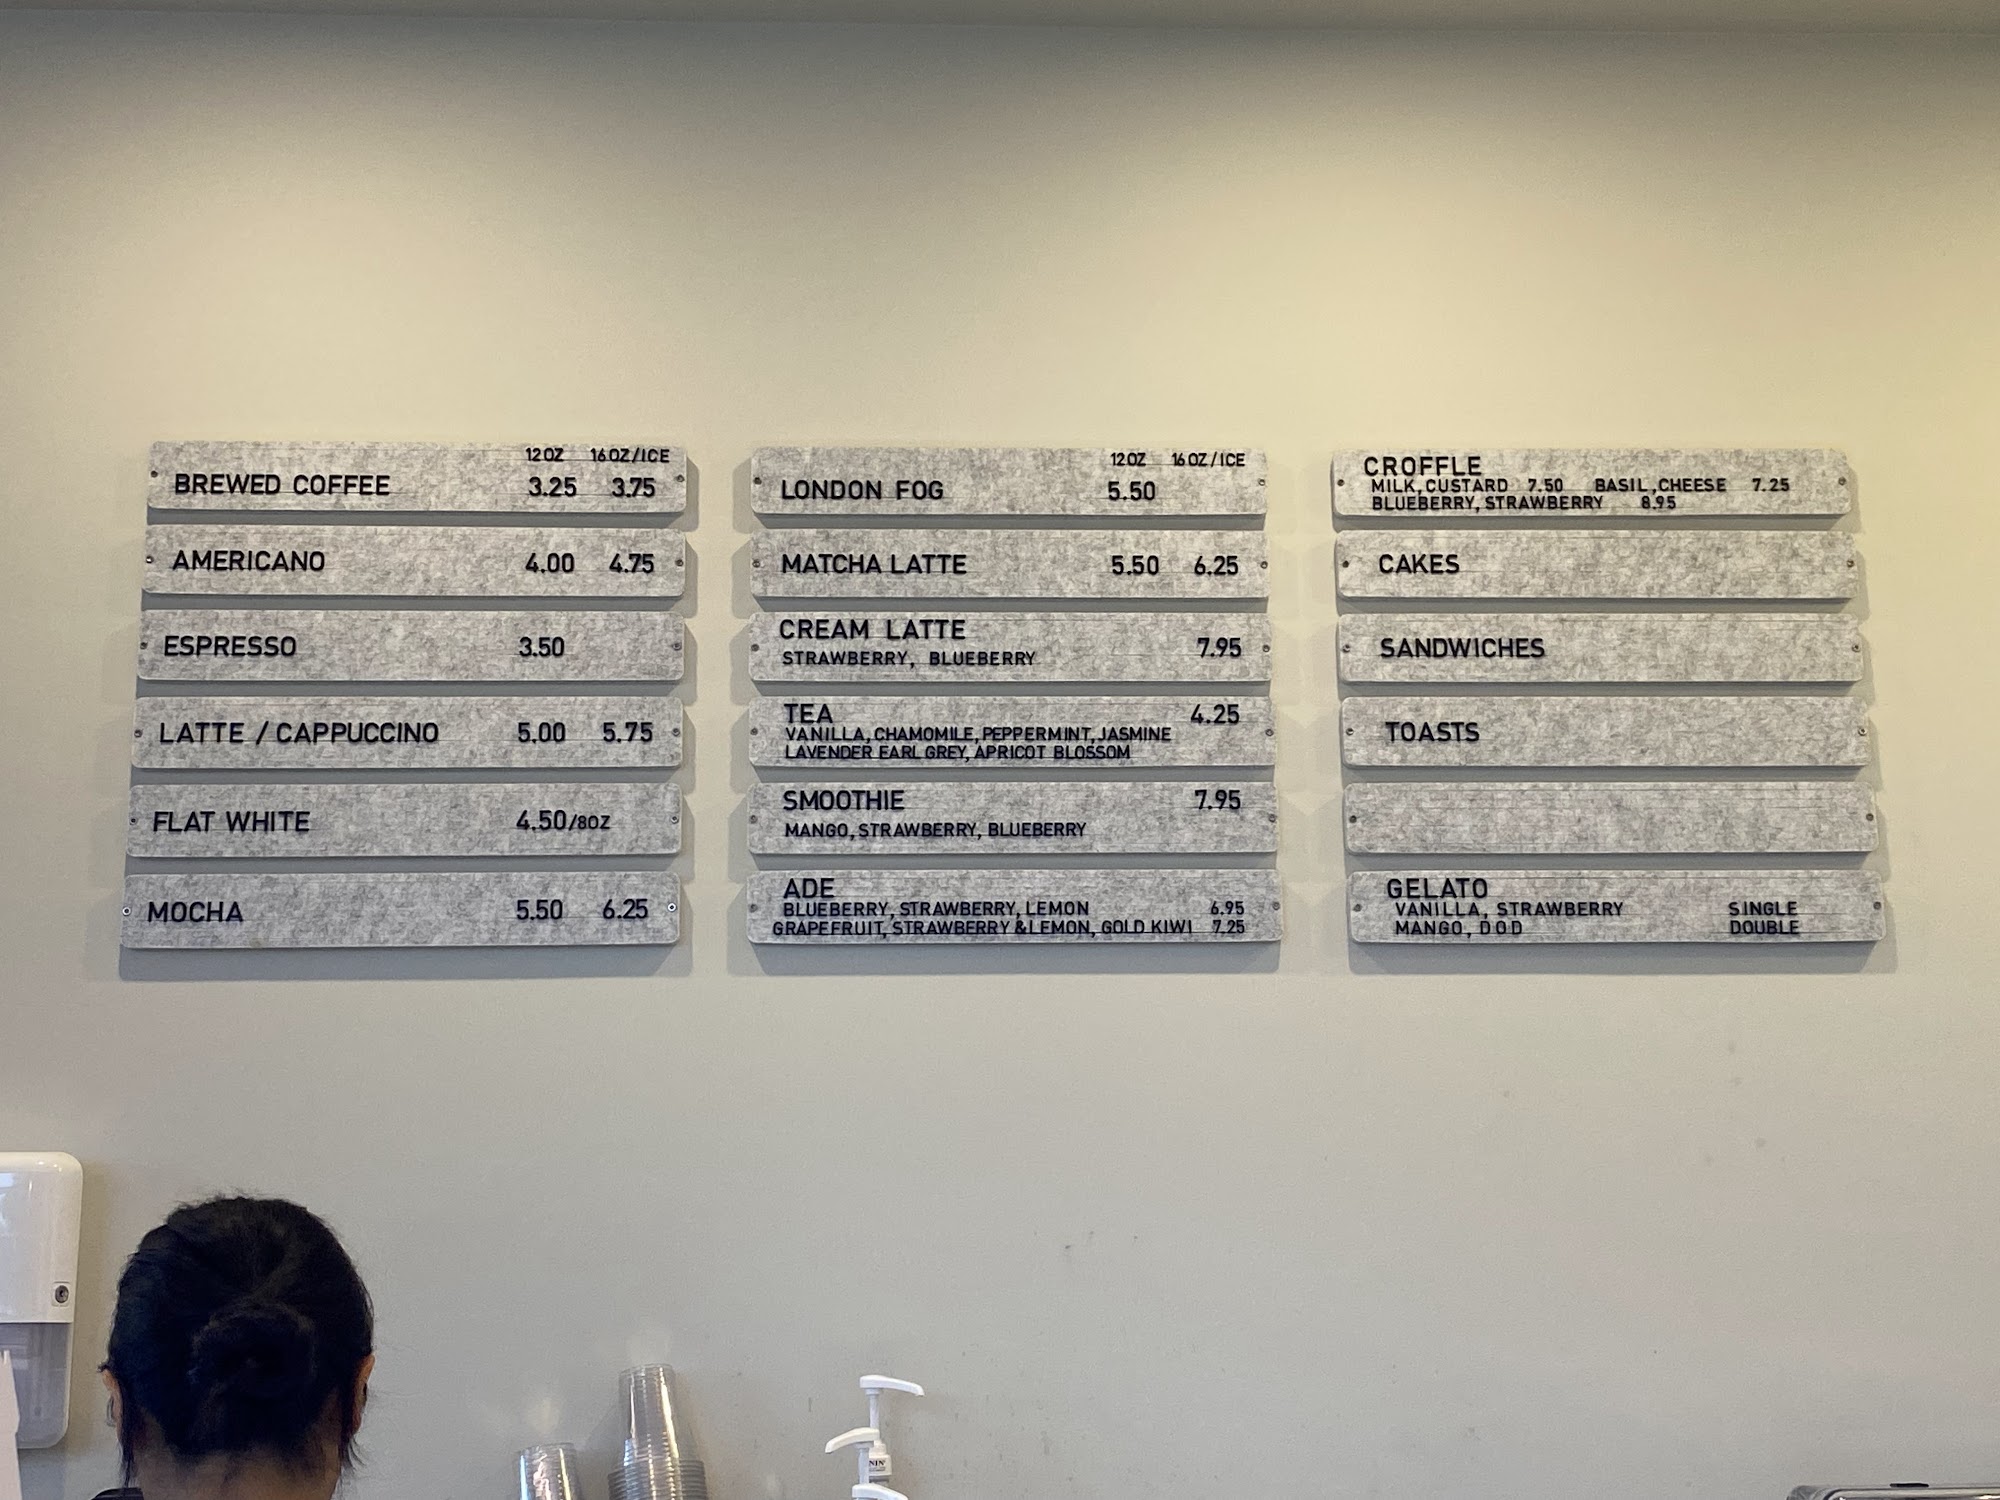 12OZ 16OZ/ICE
BREWED COFFEE 3.25 3.75
AMERICANO 4.00 4.75
ESPRESSO 3.50
LATTE / CAPPUCCINO 5.00 5.75
FLAT WHITE 4.50/8OZ
MOCHA 5.50 6.25
12OZ 16OZ/ICE
LONDON FOG 5.50
MATCHA LATTE 5.50 6.25
CREAM LATTE 7.95
STRAWBERRY, BLUEBERRY
TEA 4.25
VANILLA, CHAMOMILE, PEPPERMINT, JASMINE
LAVENDER EARL GREY, APRICOT BLOSSOM
SMOOTHIE 7.95
MANGO, STRAWBERRY, BLUEBERRY
ADE
BLUEBERRY, STRAWBERRY, LEMON 6.95
GRAPEFRUIT, STRAWBERRY & LEMON, GOLD KIWI 7.25
CROFFLE
MILK, CUSTARD 7.50 BASIL, CHEESE 7.25
BLUEBERRY, STRAWBERRY 8.95
CAKES
SANDWICHES
TOASTS
GELATO
VANILLA, STRAWBERRY SINGLE
MANGO, DOD DOUBLE